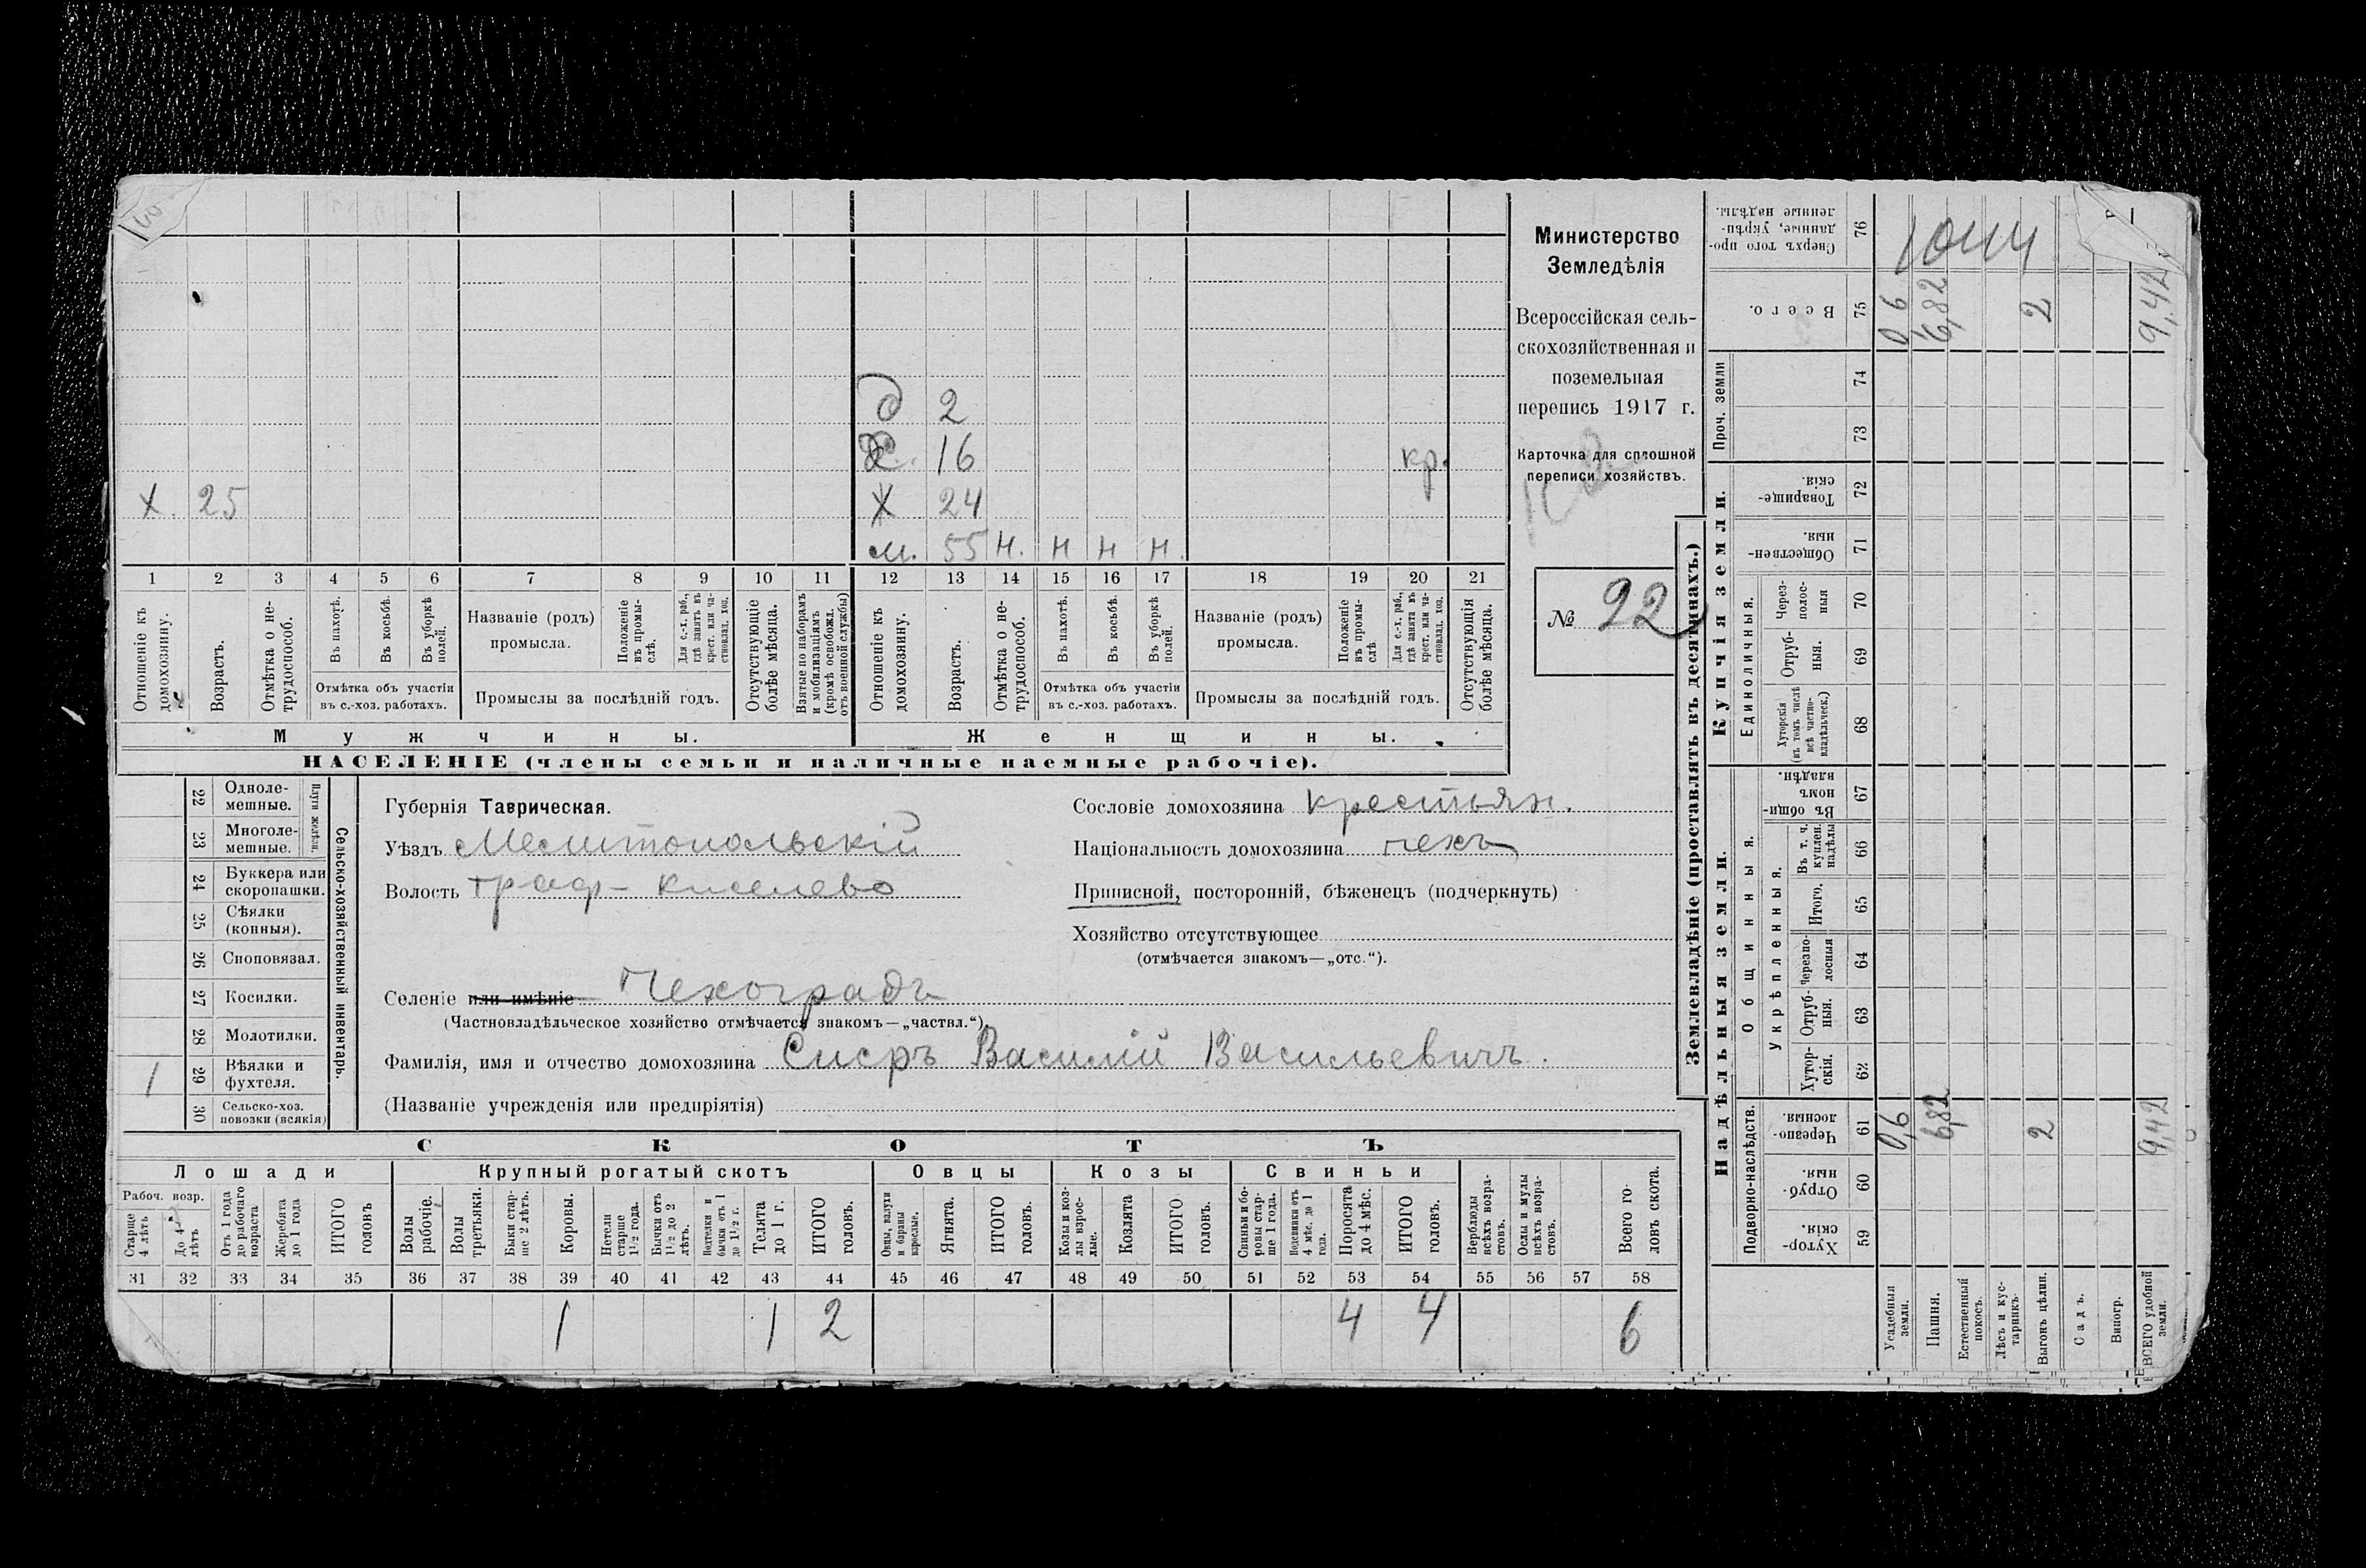 д 2
Ж. 16 кр.
х. 25 Ж 24
м. 55 н. н н н.
1 2 3 4 5 6 7 8 9 10 11 12 13 14 15 16 17 18 19 20 21
Отношеніе къ домохозяину.
Возрастъ.
Отмѣтка о не-трудоспособ.
Въ пахотѣ.
Въ косьбѣ.
Въ уборкѣ полей.
Отмѣтка объ участіи
въ с.-хоз. работахъ.
Названіе (родъ)
промысла.
Положеніе въ промы-слѣ.
Для с.-х. раб., гдѣ занятъ въ крест. или ча-стновлад. хоз.
Промыслы за послѣдній годъ.
Отсутствующіе болѣе мѣсяца.
Взятые по наборамъ и мобилизаціямъ (кромѣ освобожд. отъ военной службы)
Отношеніе къ домохозяину.
Возрастъ.
Отмѣтка о не-трудоспособ.
Въ пахотѣ.
Въ косьбѣ.
Въ уборкѣ полей.
Отмѣтка объ участіи
въ с.-хоз. работахъ.
Названіе (родъ)
промысла.
Положеніе въ промы-слѣ
Для с.-х. раб., гдѣ занята въ крест. или ча-стновлад. хоз.
Промыслы за послѣдній годъ.
Отсутствующія болѣе мѣсяца.
Мужчины. Женщины.
НАСЕЛЕНІЕ (члены семьи и наличные наемные рабочіе).
Министерство
Земледѣлія
Всероссійская сель-
скохозяйственная и
поземельная
перепись 1917 г.
Карточка для сплошной
переписи хозяйствъ.
№ 92
22 Однолемешные.
23 Многолемешные.
Плуги желѣзн.
24 Буккера или скоропашки.
25 Сѣялки (конныя).
26 Сноповязал.
27 Косилки.
28 Молотилки.
1 29 Вѣялки и фухтеля.
30 Сельско-хоз. повозки (всякія)
Сельско-хозяйственный инвентарь.
Губернія Таврическая.
Уѣздъ Мелитопольскій
Волость граф-Киселево
Сословіе домохозяина крестьян.
Національность домохозяина чехъ
Приписной, посторонній, бѣженецъ (подчеркнуть)
Хозяйство отсутствующее
(отмѣчается знакомъ—„отс.“).
Селеніе или имѣніе Чехоградъ
(Частновладѣльческое хозяйство отмѣчается знакомъ—„частвл.“)
Фамилія, имя и отчество домохозяина Сисръ Василій Васильевичъ.
(Названіе учрежденія или предпріятія)
СКОТЪ
Лошади Крупный рогатый скотъ Овцы Козы Свиньи
Рабоч. возр.
Старше 4 лѣтъ
До 4 лѣтъ
Отъ 1 года до рабочаго возраста
Жеребята до 1 года
ИТОГО головъ
Волы рабочіе.
Волы третьяки.
Быки стар-ше 2 лѣтъ.
Коровы.
Нетели старше 1½ года.
Бычки отъ 1½ до 2 лѣтъ.
Подтелки и бычки отъ 1 до 1½ г.
Телята до 1 г.
ИТОГО головъ.
Овцы, валухи и бараны взрослые.
Ягнята.
ИТОГО головъ.
Козы и коз-лы взрос-лые.
Козлята
ИТОГО головъ.
Свиньи и бо-ровы стар-ше 1 года.
Подсвинки отъ 4 мѣс. до 1 года.
Поросята до 4 мѣс.
ИТОГО головъ.
Верблюды всѣхъ возра-стовъ.
Ослы и мулы всѣхъ возра-стовъ.
Всего го-ловъ скота.
31 32 33 34 35 36 37 38 39 40 41 42 43 44 45 46 47 48 49 50 51 52 53 54 55 56 57 58
1 1 2 4 4 6
Землевладѣніе (проставлять въ десятинахъ.)
Надѣльныя земли. Купчія земли. Проч. земли
Подворно-наслѣдств.
Общинныя.
Укрѣпленныя.
Единоличныя.
Сверхъ того про-данные, укрѣп-ленные надѣлы. 76
Всего. 75 0 6 6,82 2 9,42
74
73
Товарище-скія. 72
Обществен-ныя. 71
Через-полос-ныя 70
Отруб-ныя. 69
Хуторскія (въ томъ числѣ всѣ частно-владѣльческ.) 68
Въ общи-номъ владѣн. 67
Въ т. ч. куплен. надѣлы 66
Итого. 65
Черезпо-лосныя 64
Отруб-ныя. 63
Хутор-скія. 62
Черезпо-лосныя. 61 0,6 6,82 2 9,42
Отруб-ныя. 60
Хутор-скія. 59
Усадебныя земли.
Пашня.
Естественный покосъ.
Лѣсъ и кус-тарникъ
Выгонъ цѣлин.
Садъ.
Виногр.
ВСЕГО удобной земли.